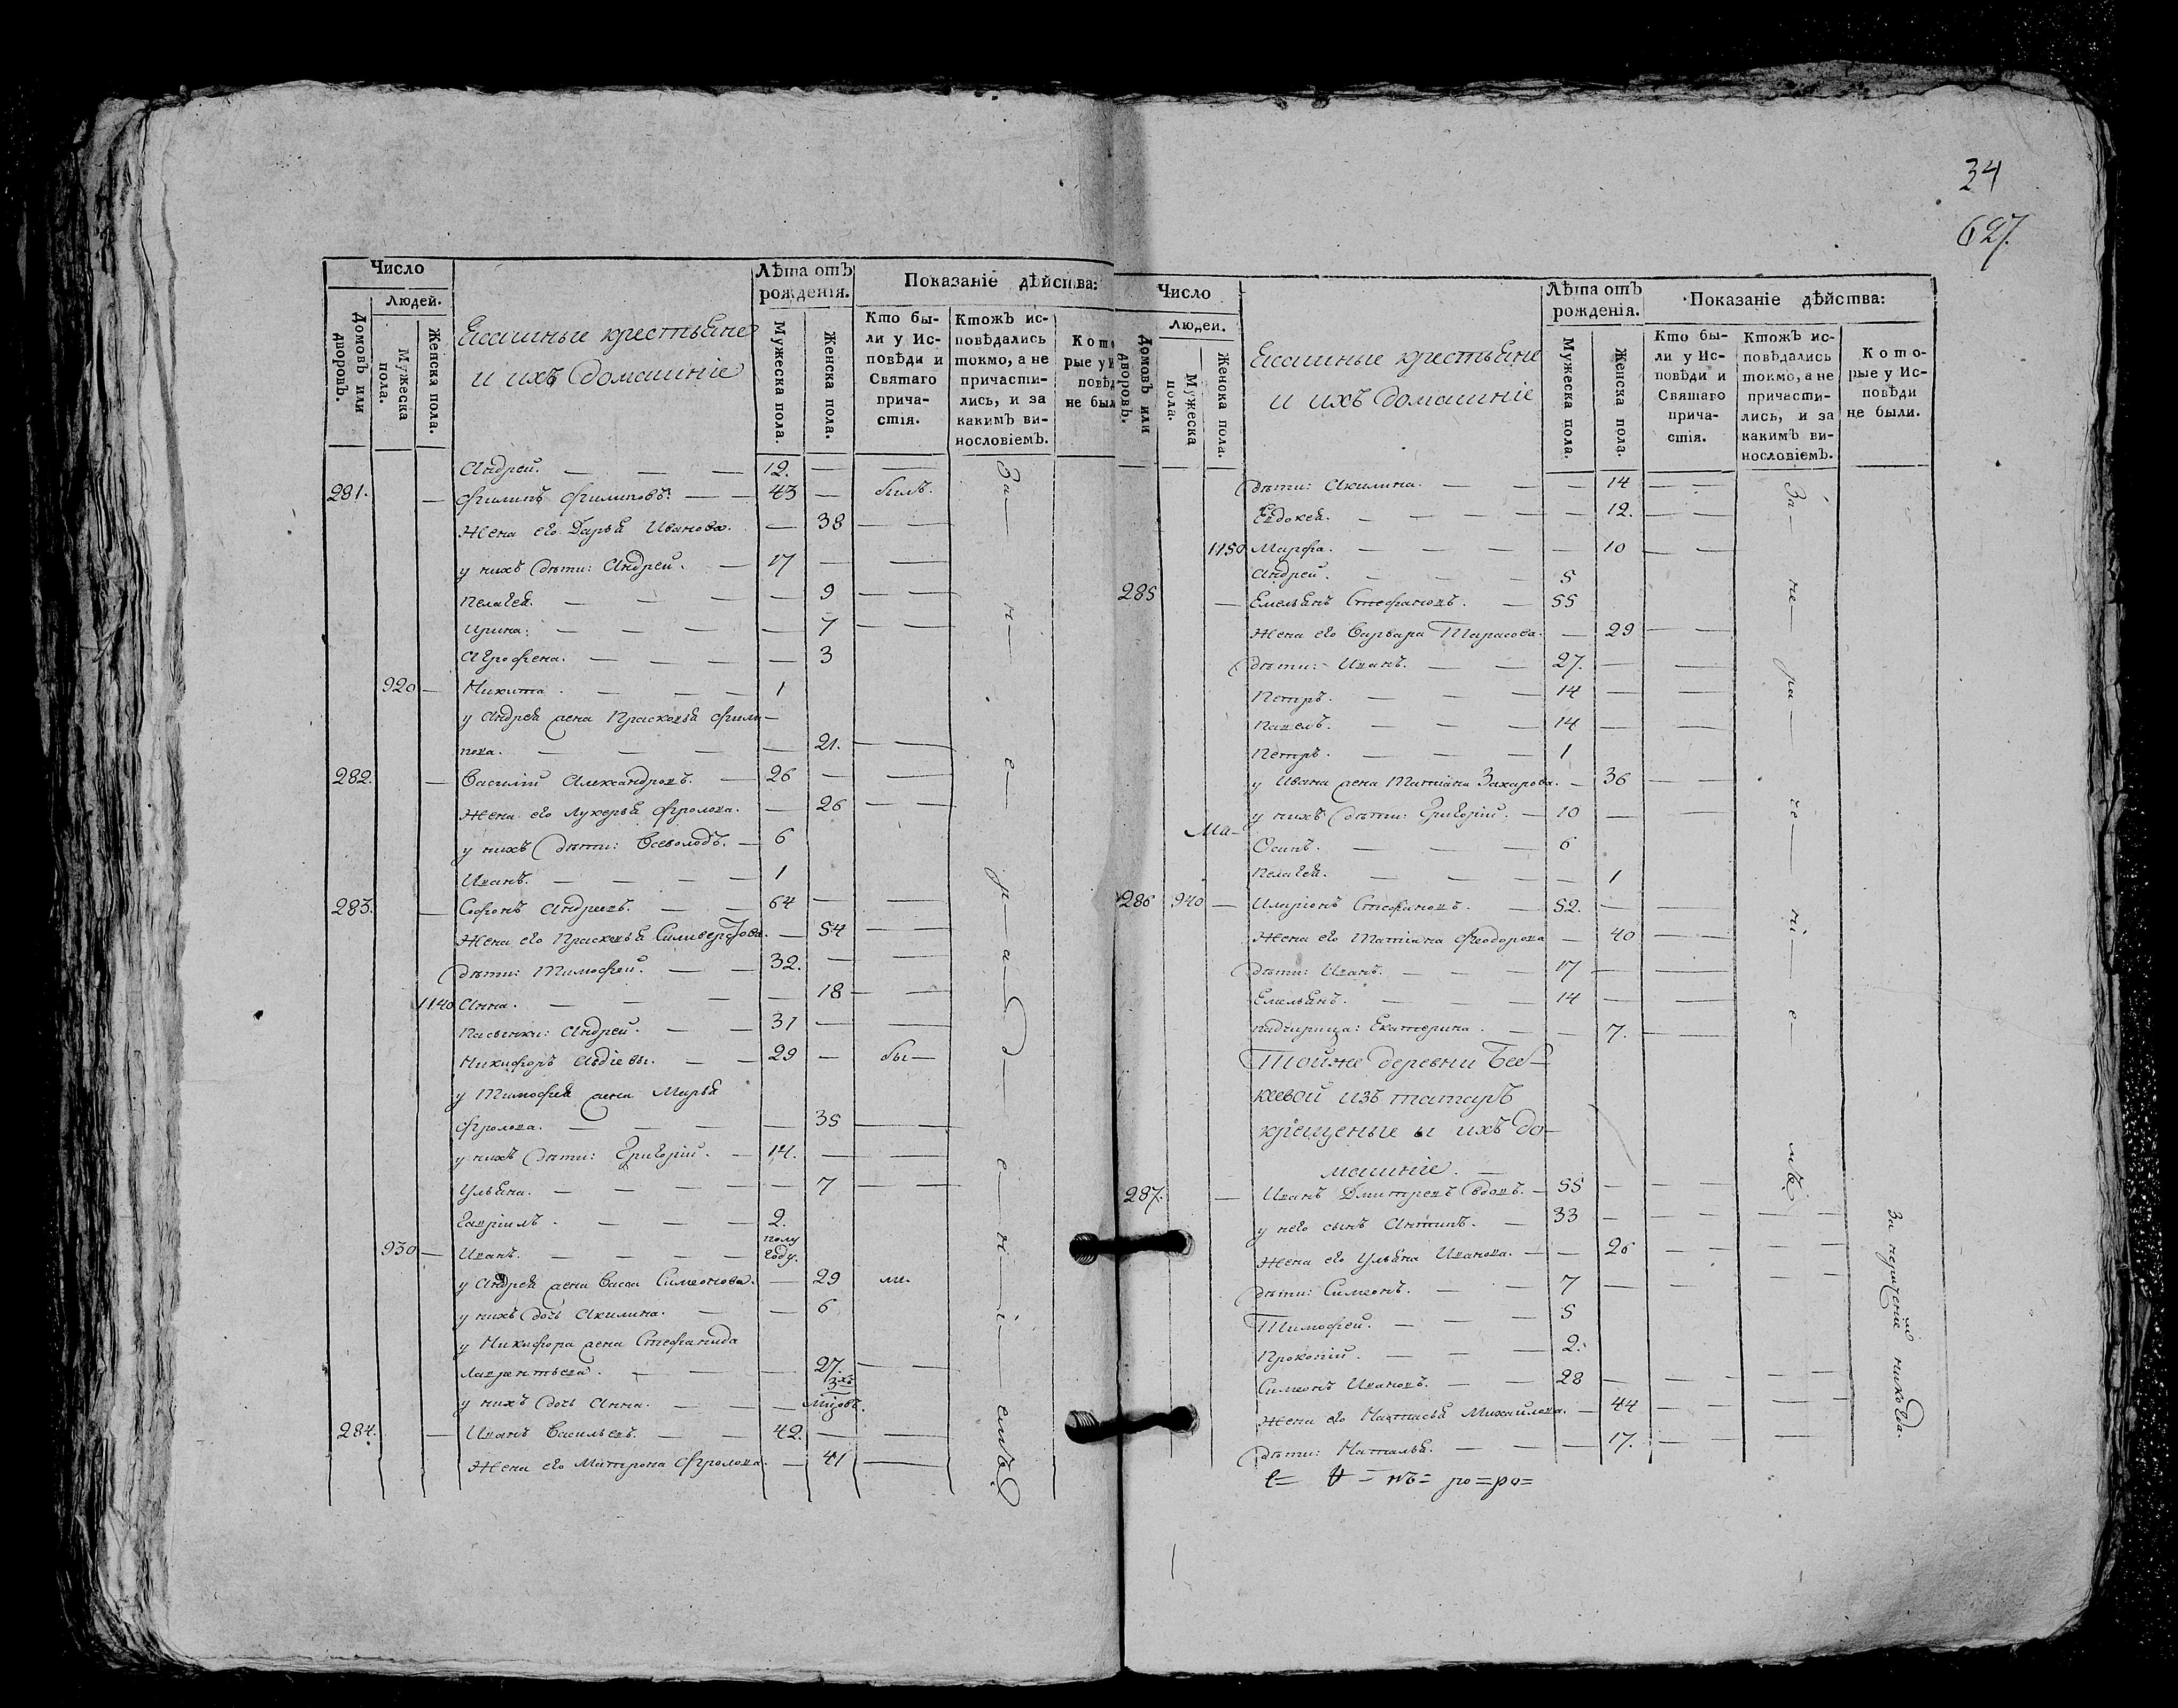 34
627.
Число
Людей.
Домовъ или дворовъ.
Мужеска пола.
Женска пола.
Ясашные крестьяне
и ихъ домашніе
Лѣта отъ рожденія.
Мужеска пола.
Женска пола.
Показаніе дѣйства:
Кто бы-
ли у Ис-
повѣди и
Святаго
прича-
стія.
Ктожъ ис-
повѣдались
токмо, а не
причасти-
лись, и за
какимъ ви-
нословіемъ.
Кото
рые у И
повѣд
не был
Андрей. — — — 12. — — —
281. — Филипъ Филиповъ. — — 43 — былъ.
Жена его Дарья Иванова. — 38 — —
у нихъ дѣти: Андрей. — 17 — —
Пелагея. — — — — 9 — —
Ирина: — — — — 7 — —
Агрофена. — — — — 3
920 — Никита. — — — 1
у Андрея жена Прасковья Фили-
пова. — — — — 21. — —
282. — Василій Александровъ. — 26 — —
Жена его Лукерья Фролова. — 26 — —
у нихъ дѣти: Всеволодъ. — 6
Иванъ. — — — — 1
283. — Софонъ Андреевъ. — — 64 — —
Жена его Прасковья Силиверстова. — 54 — —
дѣти: Тимофей. — — 32. — —
1140 Анна. — — — — 18 — —
Пасынки: Андрей. — — 31 — —
Никифоръ Авдіевы. — — 29 — бы—
у Тимофея жена Марья
Фролова. — — — — 35 — —
у нихъ дѣти: Григорій. — 14. — —
Ульяна. — — — — 7 — —
Гавріилъ. — — — 2.
930 — Иванъ. — — — — полу году.
у Андрея жена Васса Симеонова. — 29 ли.
у нихъ дочь Акилина. — — 6
у Никифора жена Стефанида
Лаврентьева. — — — 27. — —
у нихъ дочь Анна. — — — 3хъ мцовъ.
284. — Иванъ Васильевъ. — — 42. — —
Жена его Матрона Фролова. — 41 — —
За — н — е — р — а д — е — н — і — емъ
Число
Людей.
Домовъ или дворовъ.
Мужеска пола.
Женска пола.
Ясашные крестьяне
и ихъ домашніе
Лѣта отъ рожденія.
Мужеска пола.
Женска пола.
Показаніе дѣйства:
Кто бы-
ли у Ис-
повѣди и
Святаго
прича-
стія.
Ктожъ ис-
повѣдались
токмо, а не
причасти-
лись, и за
какимъ ви-
нословіемъ.
Кото-
рые у Ис-
повѣди
не были.
дѣти: Акилина. — — — 14 — —
Евдокея. — — — — 12. — —
1150 Марфа. — — — — 10 — —
Андрей. — — — 5
285 — Емельянъ Стефановъ. — 55
Жена его Варвара Тарасова. — 29 — —
дѣти: Иванъ. — — 27. — —
Петръ. — — — 14 — —
Павелъ. — — — 14 — —
Петръ. — — — 1
у Ивана жена Татіана Захарова. — 36 — —
у нихъ дѣти: Григорій. — 10 — —
Ма-
Осипъ. — — — 6
Пелагея. — — — — 1
286 940 — Иларіонъ Стефановъ. — 52. — —
Жена его Татіана Феодорова — 40 — —
дѣти: Иванъ. — — — 17 — —
Емельянъ. — — — 14 — —
падчирица: Екатерина. — — 7. — —
Тойже деревни Беб-
кеевой изъ татаръ
крещеные и ихъ до-
машніе. —
287. — Иванъ Дмитревъ вдовъ. — 55 — — —
у него сынъ Антипъ. — 33 — — — —
Жена его Ульяна Иванова. — — 26 — — — —
дѣти: Симеонъ. — — 7 — — — —
Тимофей. — — — 5
Прокопій. — — — 2.
Симеонъ Ивановъ. — — 28 — — — —
Жена его Настасья Михайлова. — 44 — — — —
дѣти: Наталья. — — — 17. — — — —
За — не — ра — че — ні — е — мъ
За нераченіемъ никогда.